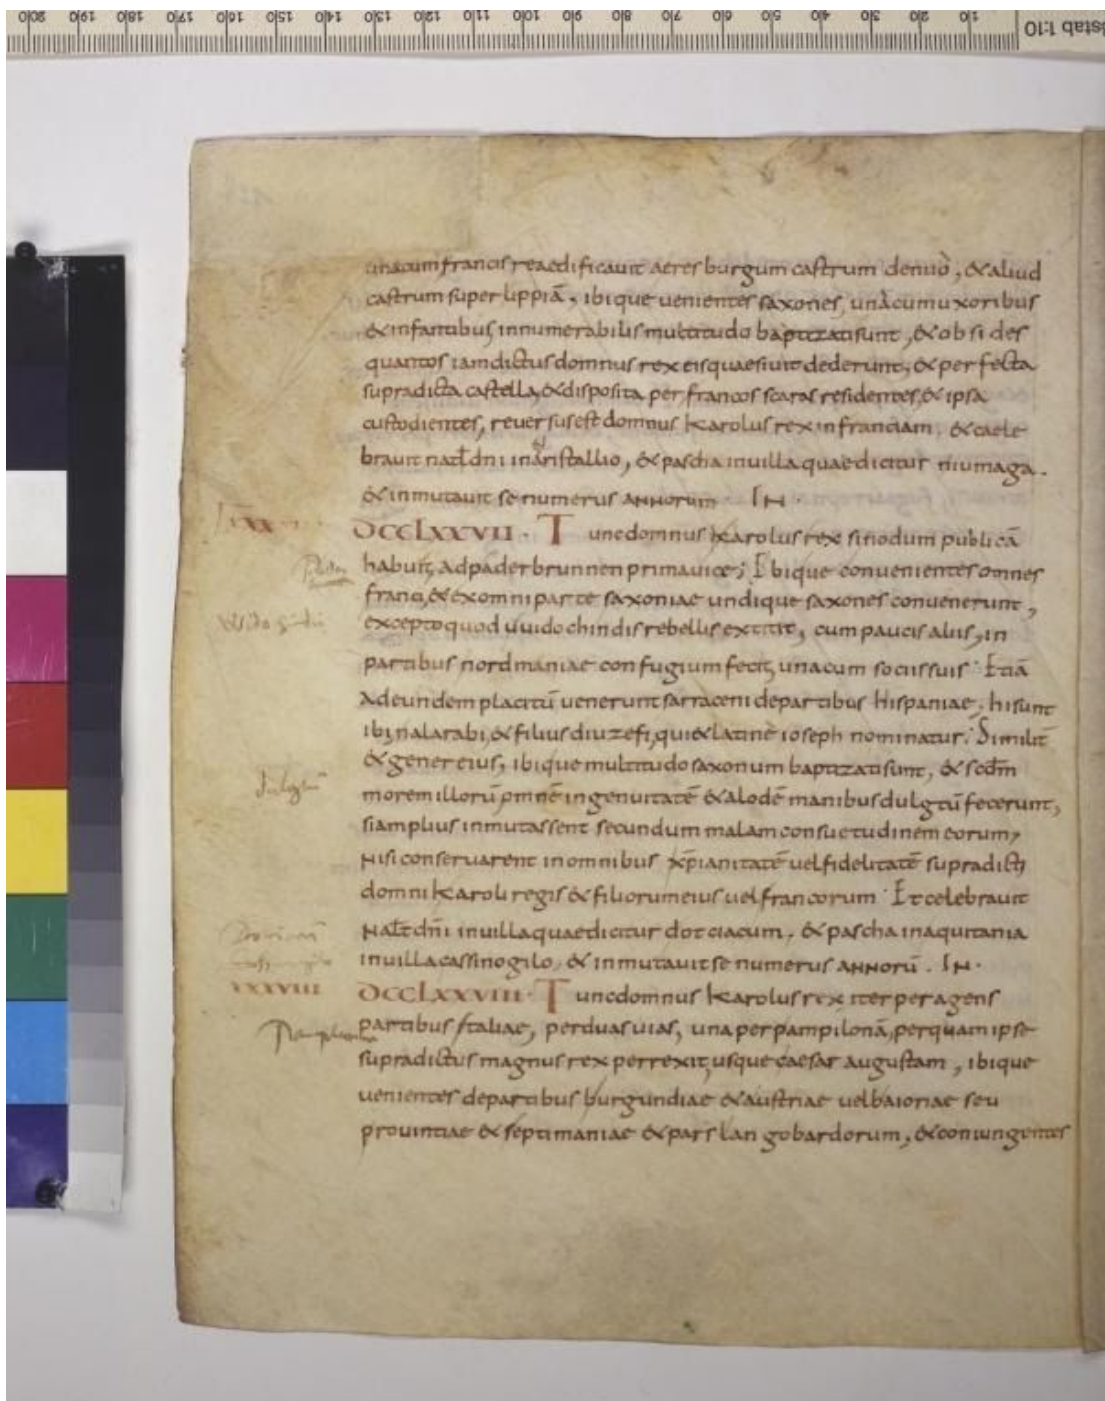 200 190 180 170 160 150 140 130 120 110 100 90 80 70 60 50 40 30 20 10 stab 1:10
unacum francis reaedificauit aeres burgum castrum denuò, & aliud
castrum super lippiā, ibique uenientes saxones, unàcum uxoribus
& infantibus innumerabilis multitudo baptizati sunt, & obsides
quantos iamdictus domnus rex eis quaesiuit dederunt, & perfecta
supradicta castella, & disposita per francos scaras residentes, & ipsa
custodientes, reuersus est domnus karolus rex in franciam, & caele
brauit nat̄ dn̄i in aristallio, & pascha in uilla quae dicitur niumaga.
& inmutauit se numerus annorum. IN.
DCCLXXVII. Tunc domnus karolus rex sinodum publicā
habuit, ad paderbrunnen prima uice; Ibique convenientes omnes
franci, & ex omni parte saxoniae undique saxones convenerunt,
excepto quod uuidochindis rebellis extitit, cum paucis aliis, in
partibus nordmaniae confugium fecit, unacum sociis suis. Etiā
ad eundem placitū uenerunt sarraceni de partibus hispaniae, hi sunt
ibinalarabi, & filius diuzefi, qui & latinè ioseph nominatur. Similit̄
& gener eius, ibique multitudo saxonum baptizati sunt, & scd̄m
morem illorū omnē ingenuitatē & alodē manibus dulgtū fecerunt,
si amplius inmutassent secundum malam consuetudinem eorum,
nisi conservarent in omnibus xp̄ianitatē uel fidelitatē supradicti
domni karoli regis & filiorum eius uel francorum. Et celebrauit
nat̄ dn̄i in uilla quae dicitur dotciacum, & pascha in aquitania
in uilla cassinogilo, & inmutauit se numerus annorū. IN.
XXXVIII DCCLXXVIII. Tunc domnus karolus rex iter peragens
partibus Italiae, per duas uias, una per pampilonā, per quam ipse
supradictus magnus rex perrexit, usque caesar augustam, ibique
uenientes de partibus burgundiae & austriae uel baioriae seu
prouintiae & septimaniae & pars langobardorum, & coniungentes